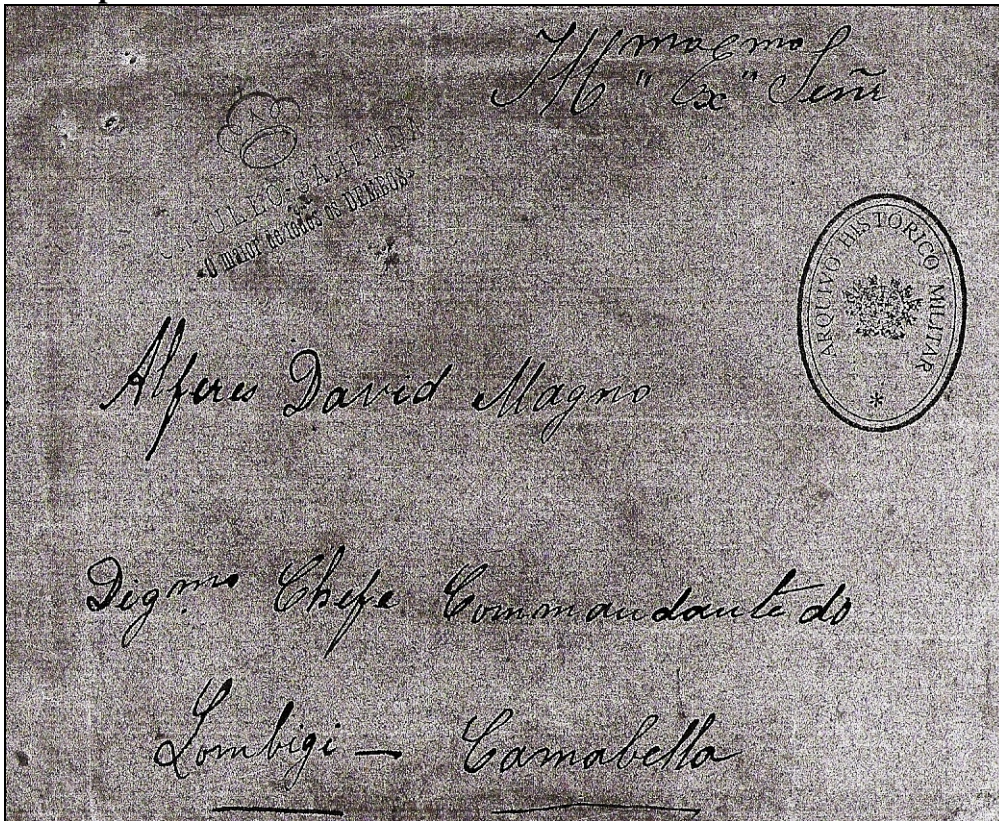 Illmo e Exmo Senr
CULEO-CAHENDA
«O maior de todos os DEMBOS»
ARQUIVO HISTORICO MILITAR
*
Alferes David Magno
Digmo Chefe Commandante do
Lombigi — Camabella